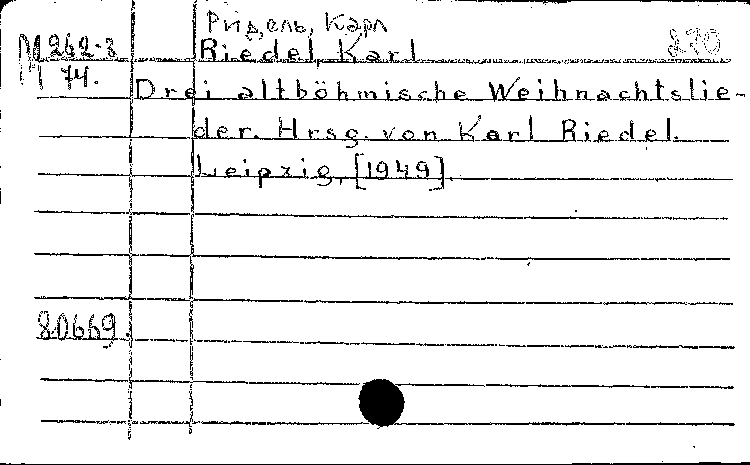 Ридель, Карл
М 262-3 Riedel, Karl 270
74.
Drei altböhmische Weihnachtslie-
der. Hrsg. von Karl Riedel.
Leipzig, [1949].
80669.